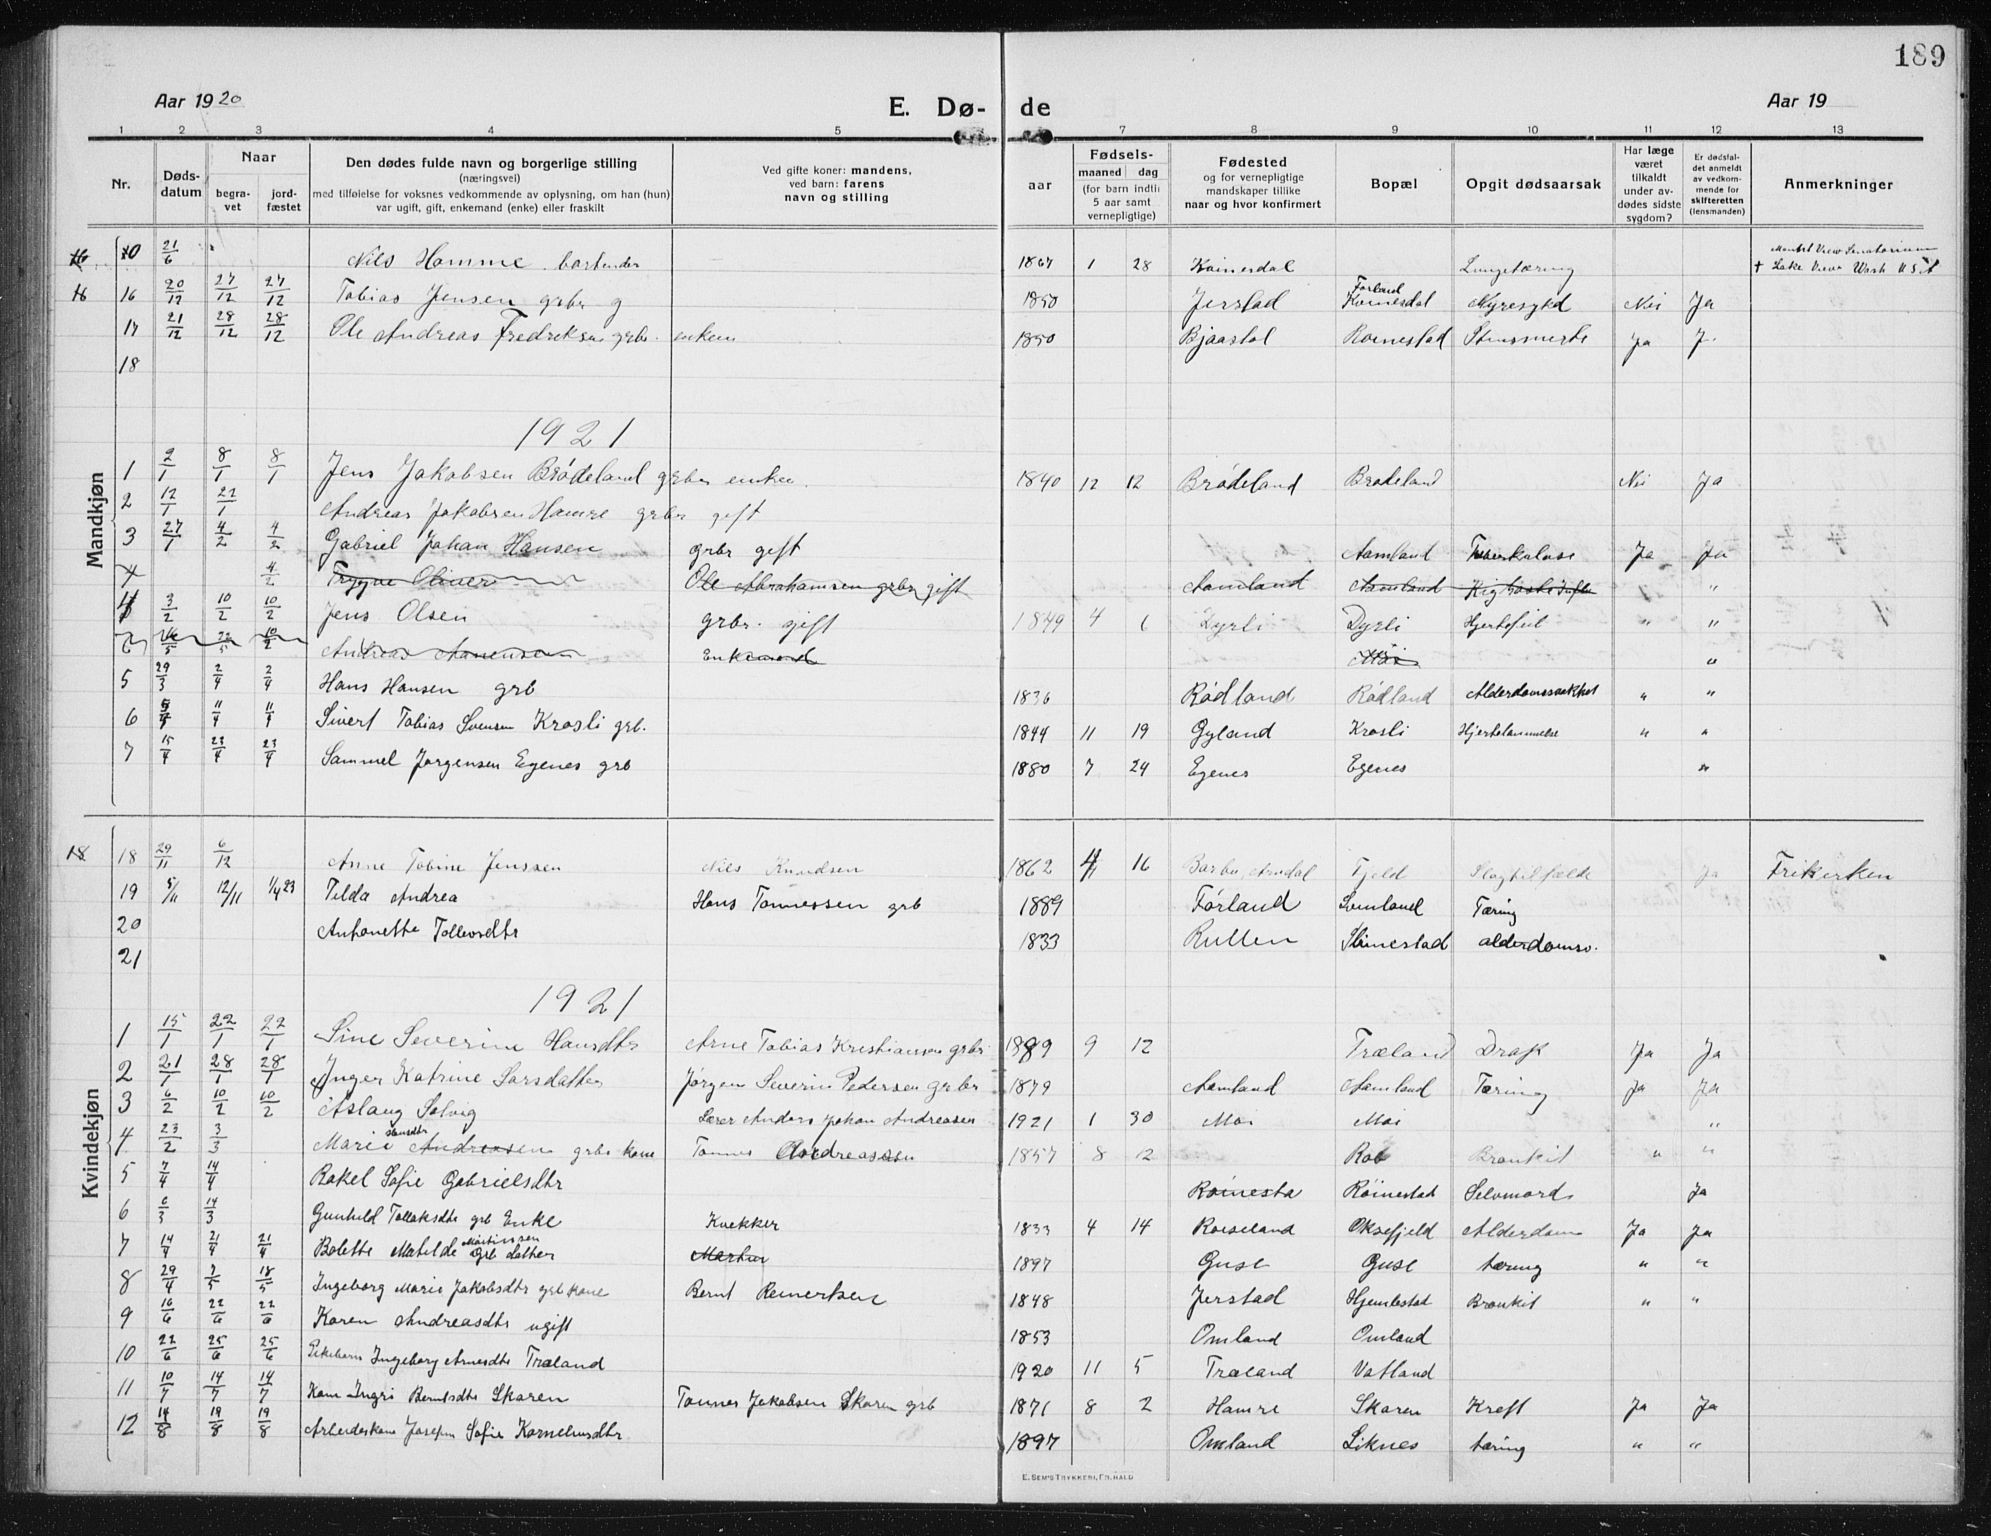 189
Aar 1920 E. Dø- de Aar 19
1 2 3 4 5 7 8 9 10 11 12 13
Nr. Døds-datum Naar begra-vet jord-fæstet Den dødes fulde navn og borgerlige stilling (næringsvei) med tilføielse for voksnes vedkommende av oplysning, om han (hun) var ugift, gift, enkemand (enke) eller fraskilt Ved gifte koner: mandens, ved barn: farens navn og stilling aar Fødsels- maaned dag (for barn indtil 5 aar samt vernepligtige) Fødested og for vernepligtige mandskaper tillike naar og hvor konfirmert Bopæl Opgit dødsaarsak Har læge været tilkaldt under av-dødes sidste sygdom? Er dødsfal-det anmeldt av vedkom-mende for skifteretten (lensmanden) Anmerkninger
Mandkjøn
10 21/6 Nils Homme bartender 1867 1 28 Koinesdal Lungetæring Lake View Wash U S A
16 16 20/12 27/12 27/12 Tobias Jensen grbr g 1850 Jerstad Førland Kvinesdal Nyresykd Nei Ja
17 21/12 28/12 28/12 Ole Andreas Fredriksen grbr. enkem 1850 Bjaastal Roinestad Ja J.
18
1921
1 2/1 8/1 8/1 Jens Jakobsen Brødeland grbr enkem. 1840 12 12 Brødeland Brødeland Nei Ja
2 12/1 22/1 Andreas Jakobsen Hamre grbr gift
3 27/1 4/2 4/2 Gabriel Johan Hansen grbr gift Aamland Tuberkulose Ja Ja
4 4/2 Trygve Oliver Ole Abrahamsen grbr gift Aamland Aamland "
4 3/2 10/2 10/2 Jens Olsen grbr. gift 1849 4 6 Dyrli Dyrli Hjertefeil " "
6 16/5 22/5 10/2 Andreas Enkemand Moi "
5 29/3 2/4 2/4 Hans Hansen grb 1836 Rødland Rødland Alderdomssvakhet " "
6 5/4 11/4 11/4 Sivert Tobias Svensen Krosli grb. 1844 11 19 Gyland Krosli Hjertelammelse " "
7 15/4 23/4 23/4 Sammel Jørgensen Egenes grb 1880 7 24 Egenes Egenes "
Kvindekjøn
18 18 29/11 6/12 Anne Tobine Jenssen Nils Knudsen 1862 4 16 Barbu, Arndal Fjeld Slagtilfælde Ja Frikirken
19 5/11 12/11 1/4 23 Tilda Andrea Hans Tønnessen grb 1889 Førland Svenland Tæring
20 Antonette Tollevsdtr 1833 Rullen Stinestad alderdomsv.
21
1921
1 15/1 22/1 22/1 Sine Severine Hansdtr Arne Tobias Kristiansen grbr. 1889 9 12 Træland Drak Ja Ja
2 21/1 28/1 28/1 Inger Katrine Larsdatter Jørgen Severin Pedersen grbr 1879 Aamland Aamland Tæring Ja Ja
3 6/2 10/2 10/2 Aslaug Solvig Lærer Anders Johan Andreasen 1921 1 30 Moi Moi "
4 23/2 3/3 Marie Hansdtr Andreasen grbr kone Tønnes Andreassen 1857 8 12 Bronkit " "
5 7/4 14/4 Rakel Sofie Gabrielsdtr Røinesta Røinestad Selvmord Ja
6 6/3 14/3 Gunhild Tollaksdtr grb Enke Kvekker 1833 4 14 Roiseland Oksefjeld Alderdom Ja Ja
7 14/4 21/4 21/4 Bolette Matilde Martinssen Grb datter Martin 1897 Guse Guse tæring " "
8 29/4 7/5 18/5 Ingeborg Marie Jakobsdtr grb kone Bernt Reinertsen 1848 Jerstad Hjemlestad Bronkit " "
9 16/6 22/6 22/6 Karen Andreasdtr ugift 1853 Omland Omland
10 22/6 25/6 25/6 Pikebarn Ingeborg Arnesdtr Træland 1920 11 5 Træland Vatland
11 10/7 14/7 14/7 Kone Ingri Berntsdtr Skaren Tønnes Jakobsen Skaren grb 1871 8 2 Hamre Skaren Kreft Ja Ja
12 14/8 19/8 19/8 Arbeiderkone Josefin Sofie Korneliusdtr 1897 Omland Liknes tæring " "
E. SEM'S TRYKKERI, FR.HALD